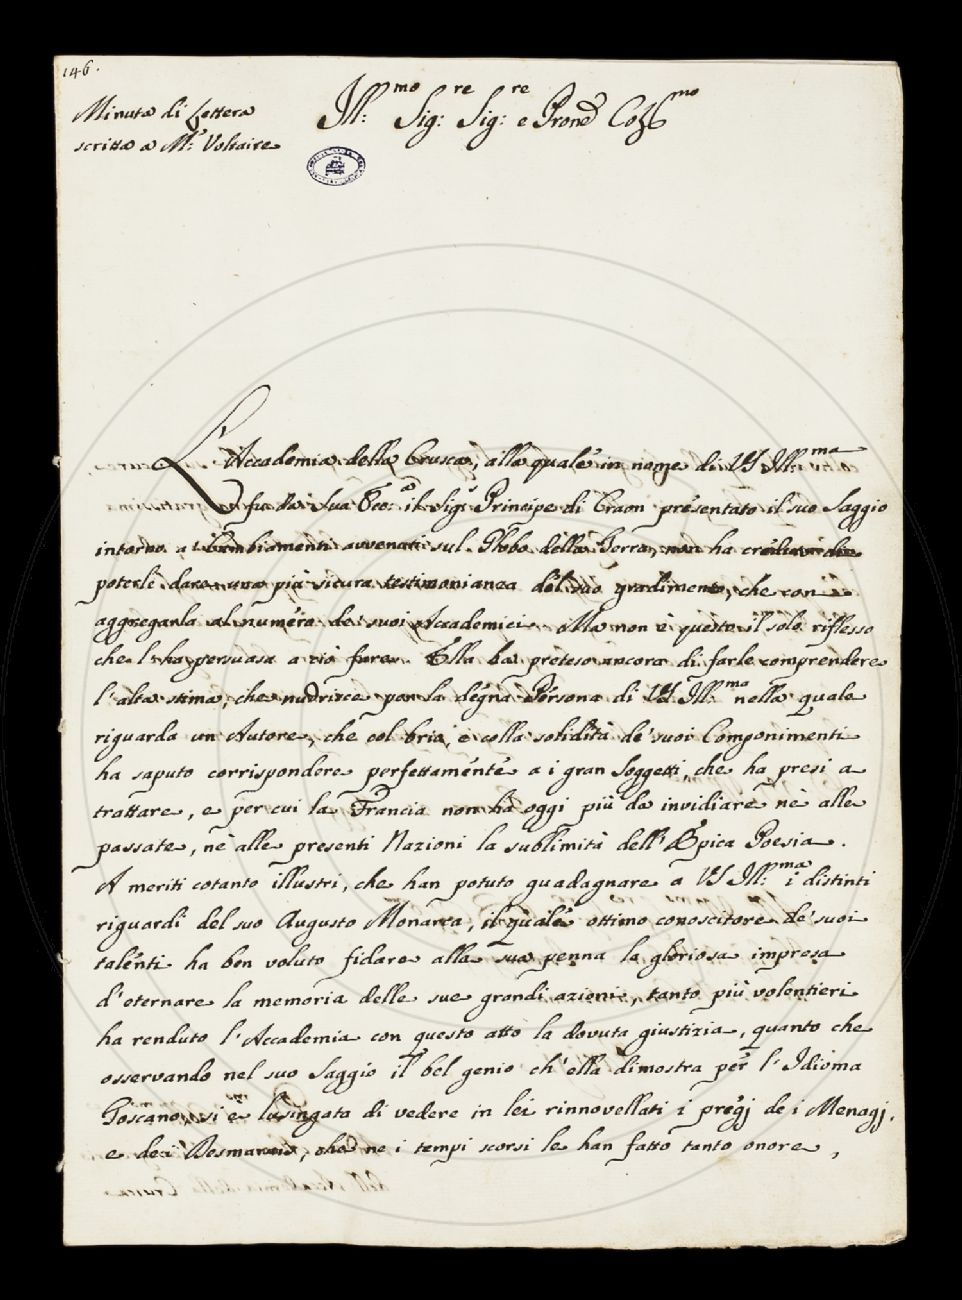 146.
Minuta di Lettera
scritta a Mr: Voltaire
Ill:mo Sig:re Sig:re e Prone Col:mo
L'Accademia della Crusca, alla quale in nome di VS Ill:ma
fu da Sua Ecc:a il Sig:r Principe di Craon presentato il suo Saggio
intorno a i Cambiamenti avvenuti sul Globo della Terra, non ha creduto di
poterle dare una più sicura testimonianza del suo gradimento, che con
aggregarla al numero de' suoi Accademici. Ma non è questo il solo riflesso
che l'ha persuasa a ciò fare. Ella ha preteso ancora di farle comprendere
l'alta stima, che nudrisce per la degna Persona di VS Ill:ma nella quale
riguarda un Autore, che col brio, e colla solidità de' suoi Componimenti
ha saputo corrispondere perfettamente a i gran Soggetti, che ha presi a
trattare, e per cui la Francia non ha oggi più da invidiare nè alle
passate, nè alle presenti Nazioni la sublimità dell'Epica Poesia.
A meriti cotanto illustri, che han potuto guadagnare a VS Ill:ma i distinti
riguardi del suo Augusto Monarca, il quale ottimo conoscitore de' suoi
talenti ha ben voluto fidare alla sua penna la gloriosa impresa
d'eternare la memoria delle sue grandi azioni, tanto più volentieri
ha renduto l'Accademia con questo atto la dovuta giustizia, quanto che
osservando nel suo Saggio il bel genio ch'ella dimostra per l'Idioma
Toscano, si è lusingata di vedere in lei rinnovellati i pregj de i Menagj,
e dei Desmarais, che ne i tempi scorsi le han fatto tanto onore,